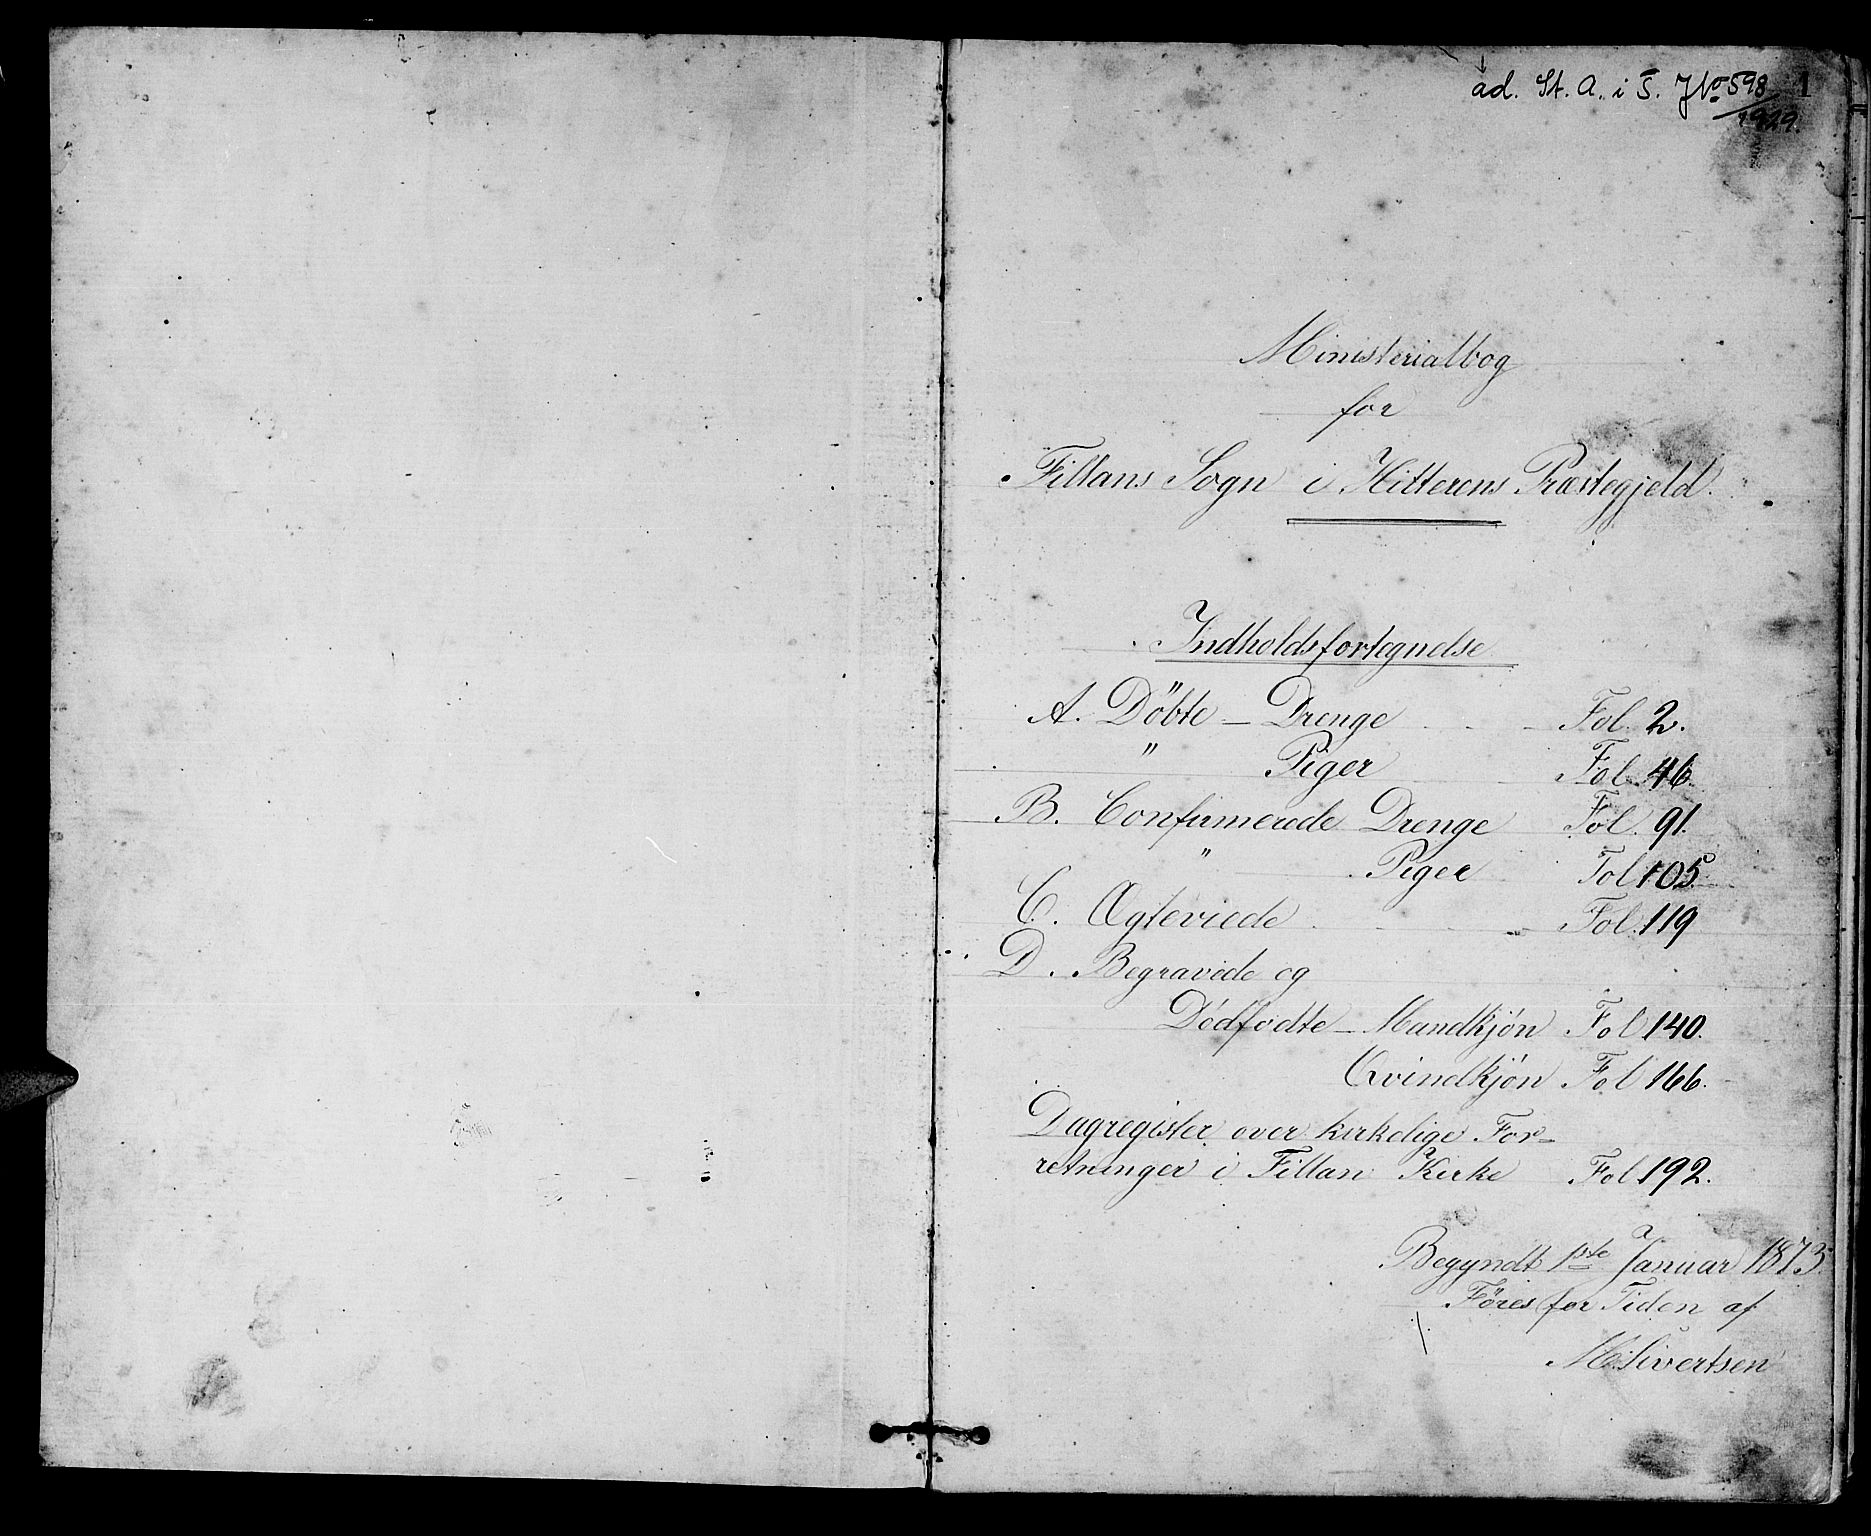 ad. St. A. i T. J No 598 1
1929.
Ministerialbog
for
Fillans Sogn i Hitterens Præstegjeld.
Indholdsfortegnelse
A. Döbte – Drenge Fol. 2.
" Piger Fol. 46.
B. Confirmerede Drenge Fol. 91.
" Piger Fol 105.
C. Ægteviede Fol. 119
D. Begravede og
Dödfödte – Mandkjön Fol 140.
Qvindkjön Fol 166.
Dagregister over kirkelige For-
retninger i Fillan Kirke Fol 192.
Begyndt 1ste Januar 1873.
Föres for Tiden af
M. Sivertsen